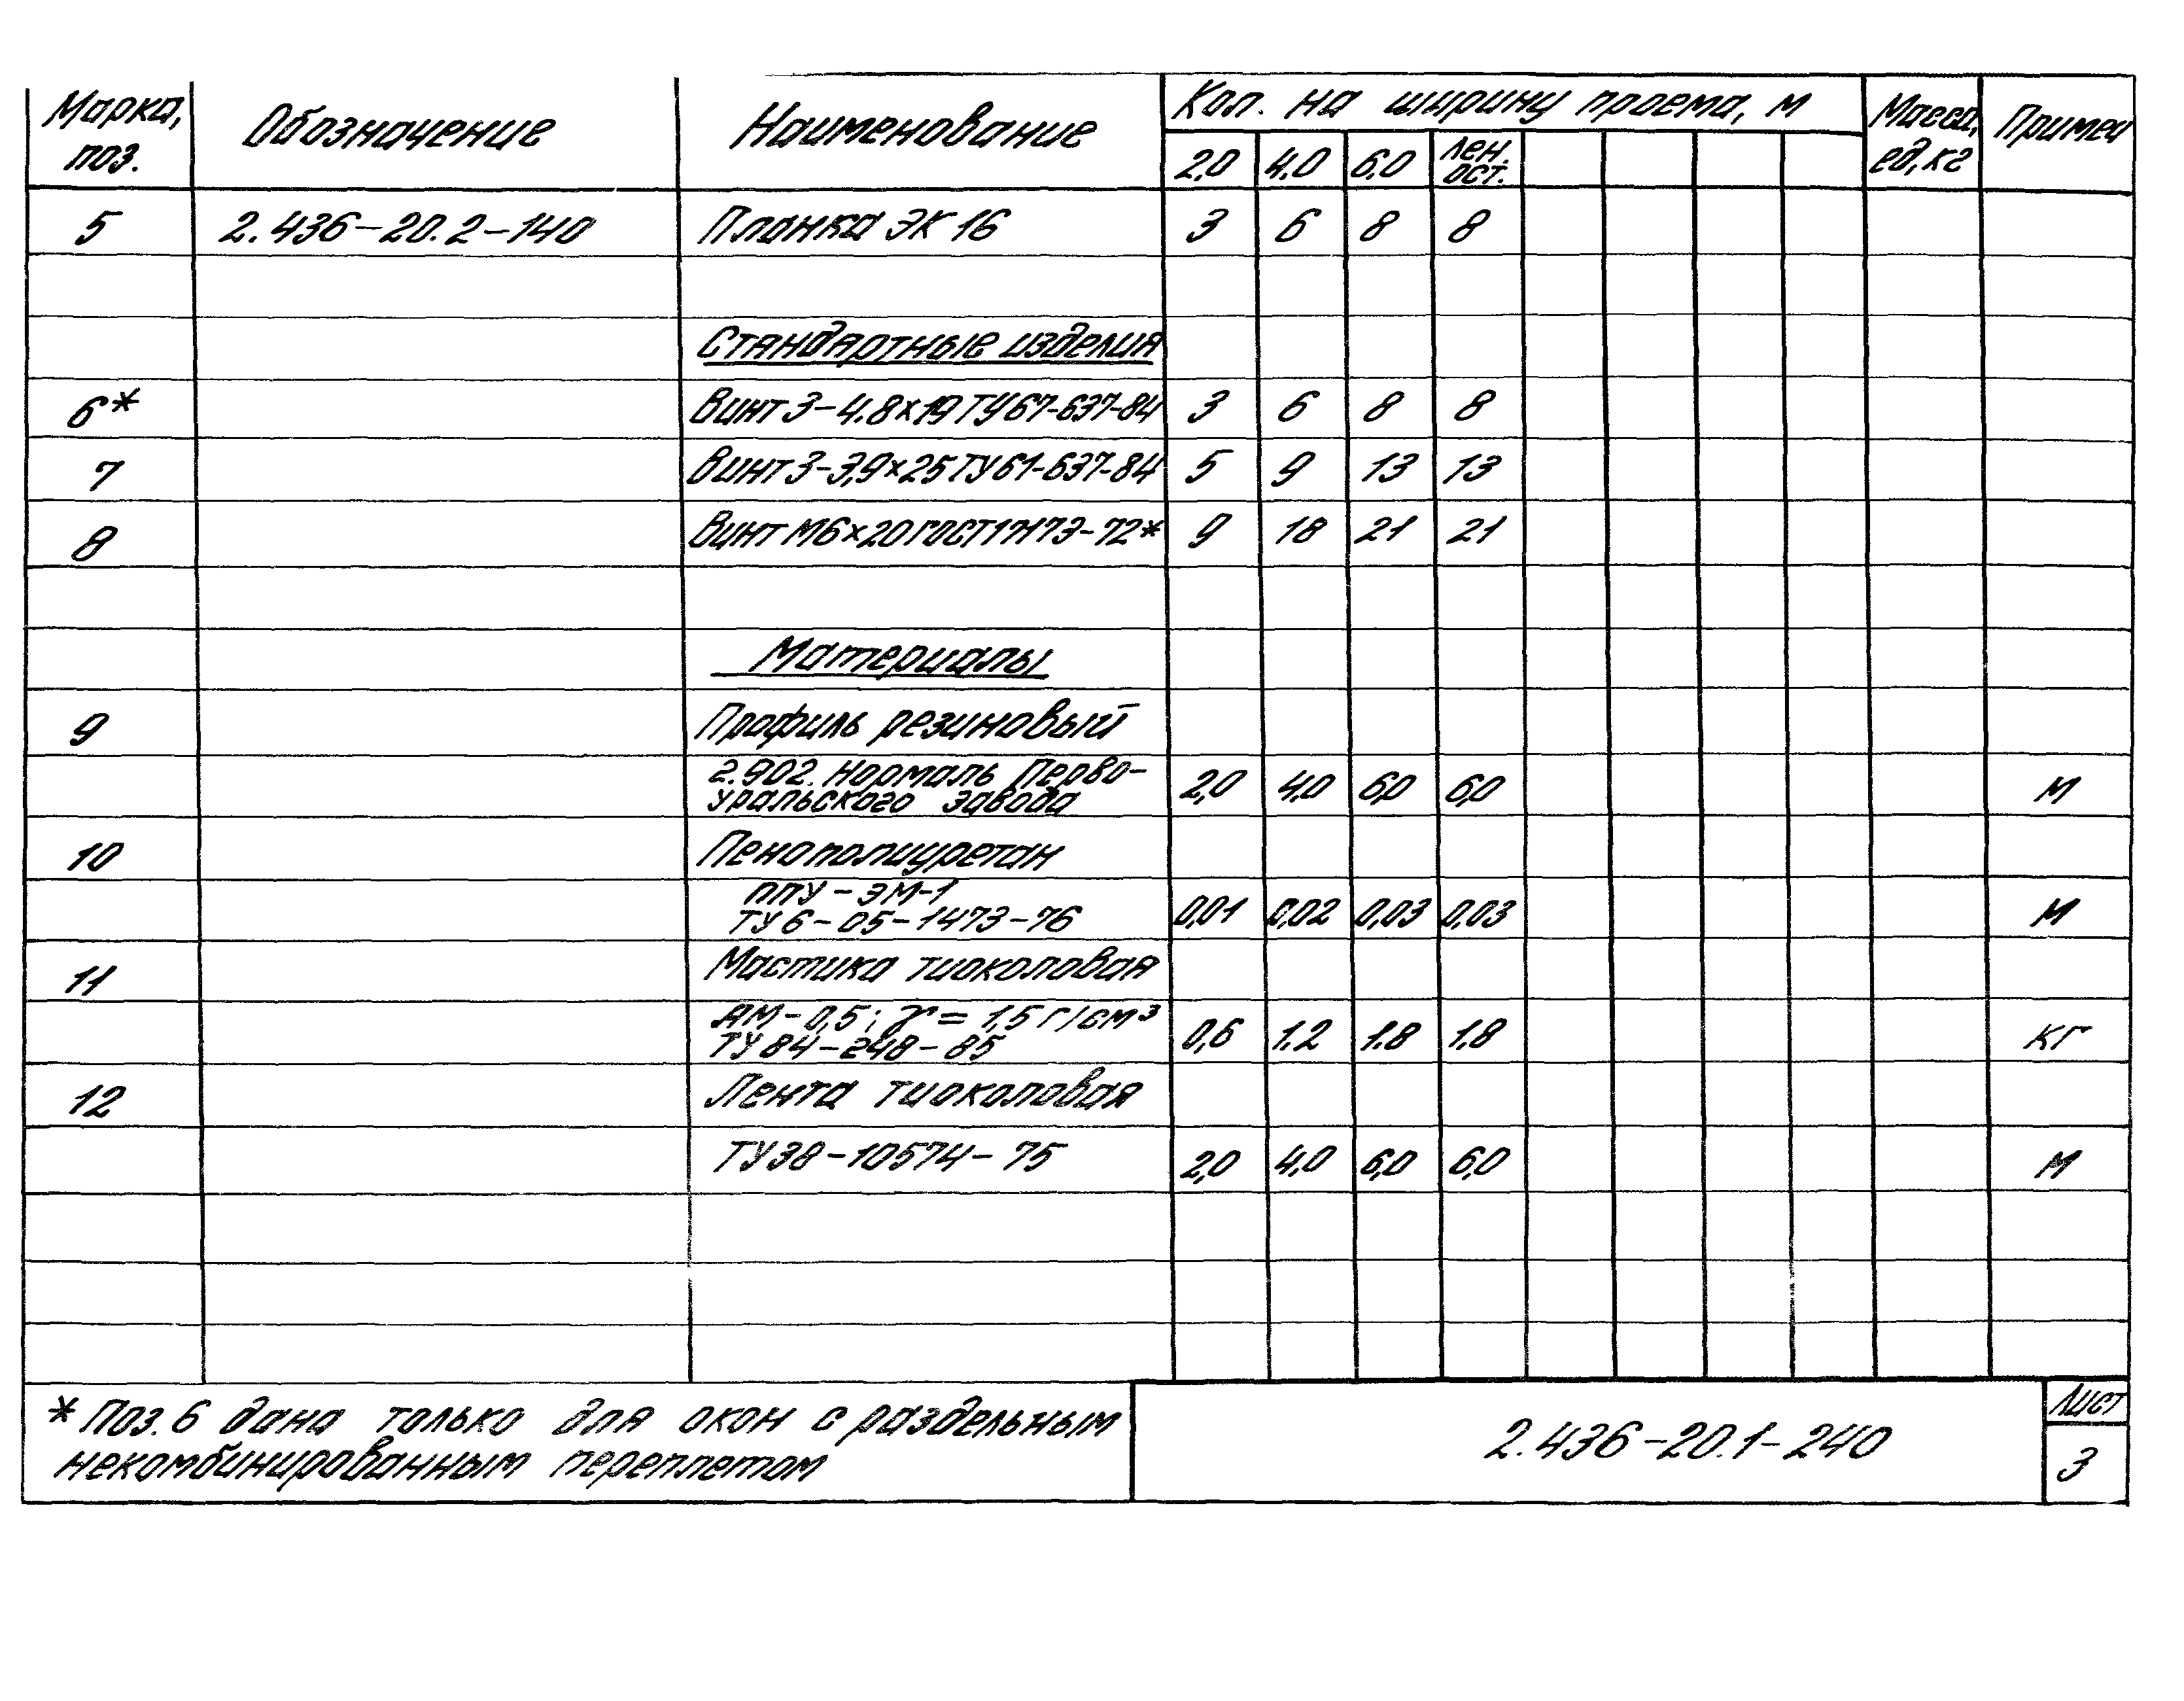 Марка, поз. Обозначение Наименование Кол. на ширину проема, м Масса, ед, кг Примеч
2,0 4,0 6,0 лен. ост.
5 2.436-20.2-140 Планка ЭК 16 3 6 8 8
Стандартные изделия
6* Винт 3-4.8×19 ТУ67-637-84 3 6 8 8
7 Винт 3-3,9×25 ТУ61-637-84 5 9 13 13
8 Винт М6×20 ГОСТ 17473-72* 9 18 21 21
Материалы
9 Профиль резиновый
2.902. Нормаль Перво-
уральского завода 2,0 4,0 6,0 6,0 м
10 Пенополиуретан
ППУ-ЭМ-1
ТУ 6-05-1473-76 0,01 0,02 0,03 0,03 м
11 Мастика тиоколовая
АМ-0,5; γ = 1,5 г/см³
ТУ 84-248-85 0,6 1.2 1.8 1.8 кг
12 Лента тиоколовая
ТУ38-10574-75 2,0 4,0 6,0 6,0 м
* Поз. 6 дана только для окон с раздельным
некомбинированным переплетом
2.436-20.1-240
Лист
3